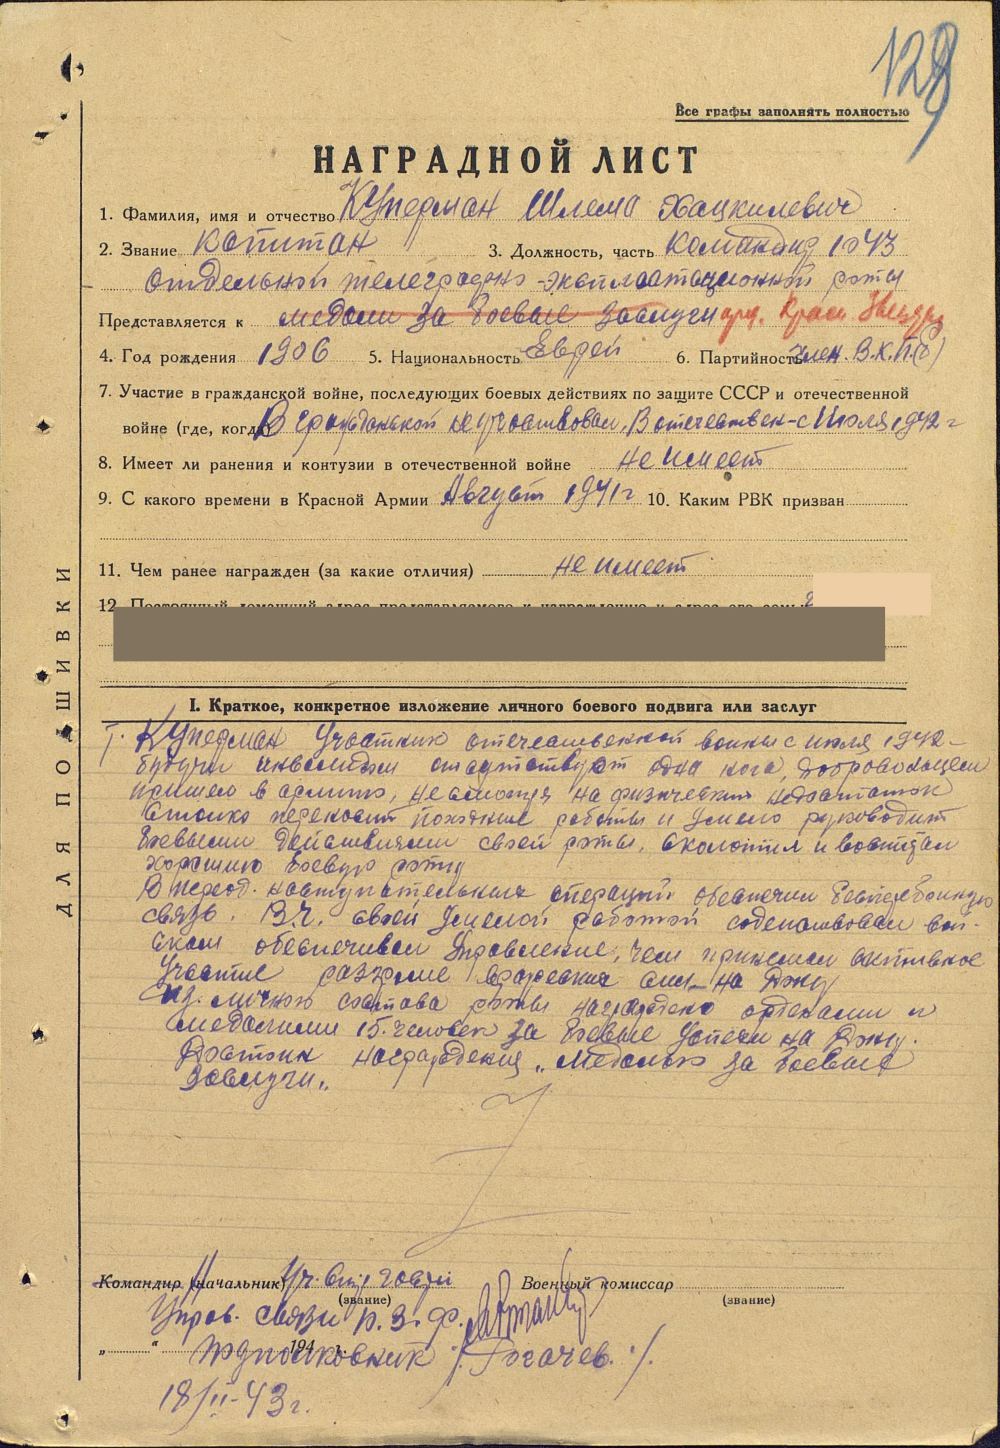 128
Все графы заполнять полностью
НАГРАДНОЙ ЛИСТ
1. Фамилия, имя и отчество Куперман Шлема Хацкилевич
2. Звание Капитан 3. Должность, часть Командир 1043
отдельной телеграфно-эксплоатационной роты
Представляется к медали за боевые заслуги орд. Красн. Звезды
4. Год рождения 1906 5. Национальность Еврей 6. Партийность член В.К.П.(б)
7. Участие в гражданской войне, последующих боевых действиях по защите СССР и отечественной
войне (где, когда) В гражданской не участвовал, В отечествен-с Июля 1942 г
8. Имеет ли ранения и контузии в отечественной войне не имеет
9. С какого времени в Красной Армии Август 1941 г 10. Каким РВК призван
11. Чем ранее награжден (за какие отличия) не имеет
12. Постоянный домашний адрес представляемого к награждению и адрес его семьи
I. Краткое, конкретное изложение личного боевого подвига или заслуг
Т. Куперман Участник отечественной войны с июля 1942-
будучи инвалидом отсутствует одна нога, добровольцем
пришел в армию, несмотря на физический недостаток
стойко переносит походные работы и умело руководит
боевыми действиями своей роты, сколотил и воспитал
хорошую боевую роту
В период наступательных операций обеспечил бесперебойную
связь. В.Ч. своей умелой работой содействовал вой-
скам обеспечивал Управление, чем принимал активное
Участие разгроме вражеских сил на Дону
Из личного состава роты награждено орденами и
медалями 15. человек за боевые успехи на Дону.
Достоин награждения „Медалью за боевые
Заслуги„
Командир (начальник) Военный комиссар
(звание) (звание)
Упров. связи Ю. З. Ф.
„ “ 194 г.
Подполковник /Рогачев./
18/II-43 г.
ДЛЯ ПОДШИВКИ